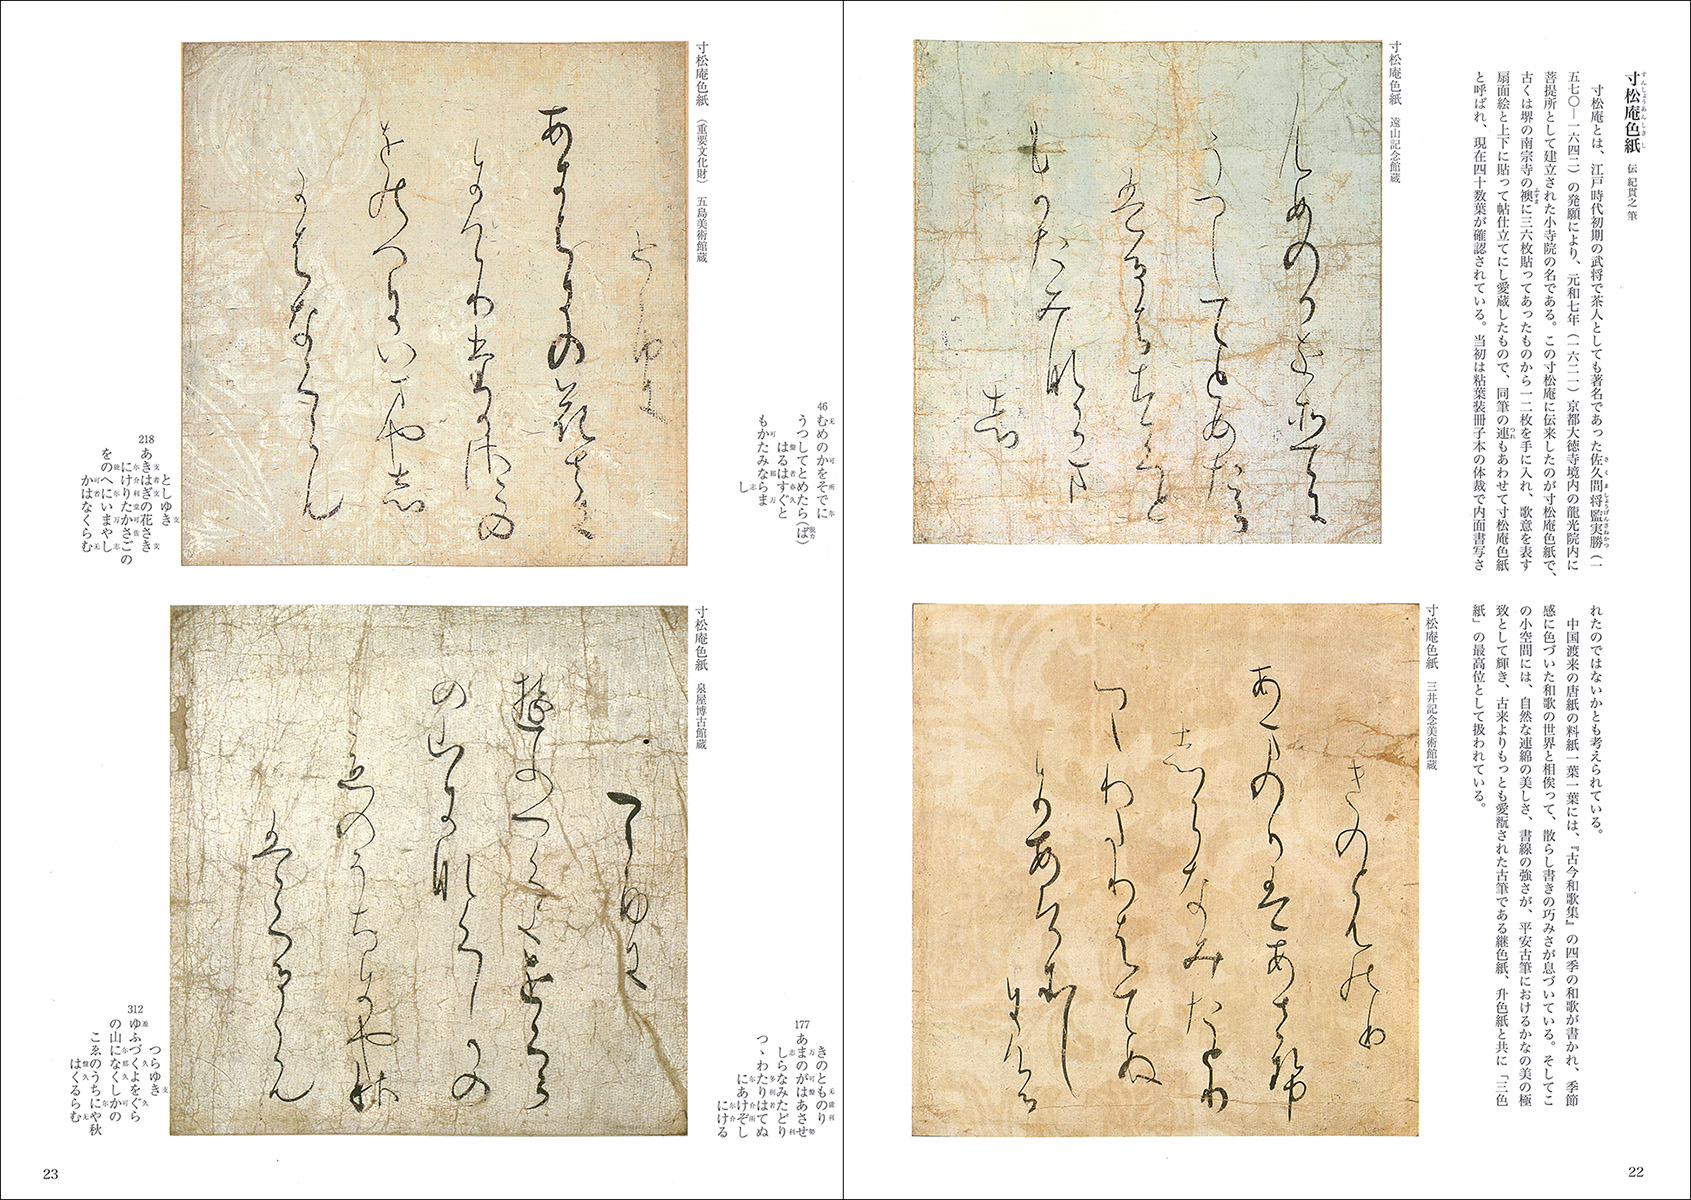 寸松庵色紙 伝 紀貫之 筆
すんしょうあんしきし
寸松庵とは、江戸時代初期の武将で茶人としても著名であった佐久間将監実勝（一
五七〇―一六四二）の発願により、元和七年（一六二一）京都大徳寺境内の龍光院内に
菩提所として建立された小寺院の名である。この寸松庵に伝来したのが寸松庵色紙で、
古くは堺の南宗寺の襖に三六枚貼ってあったものから一二枚を手に入れ、歌意を表す
扇面絵と上下に貼って帖仕立てにし愛蔵したもので、同筆の連もあわせて寸松庵色紙
と呼ばれ、現在四十数葉が確認されている。当初は粘葉装冊子本の体裁で内面書写さ
れたのではないかとも考えられている。
中国渡来の唐紙の料紙一葉一葉には、『古今和歌集』の四季の和歌が書かれ、季節
感に色づいた和歌の世界と相俟って、散らし書きの巧みさが息づいている。そしてこ
の小空間には、自然な連綿の美しさ、書線の強さが、平安古筆におけるかなの美の極
致として輝き、古来よりもっとも愛翫された古筆である継色紙、升色紙と共に「三色
紙」の最高位として扱われている。
寸松庵色紙 遠山記念館蔵
寸松庵色紙 三井記念美術館蔵
22
46
むめのかをそでに
うつしてとめたら（ば）
はるはすぐと
もかたみならま
し
177
きのとものり
あまのがはあさせ
しらなみたどり
つゝわたりはてぬ
にあけぞし
にける
寸松庵色紙（重要文化財） 五島美術館蔵
218
としゆき
あきはぎの花さき
にけりたかさごの
をのへにいまやし
かはなくらむ
寸松庵色紙 泉屋博古館蔵
312
つらゆき
ゆふづくよをぐら
の山になくしかの
こゑのうちにや秋
はくるらむ
23